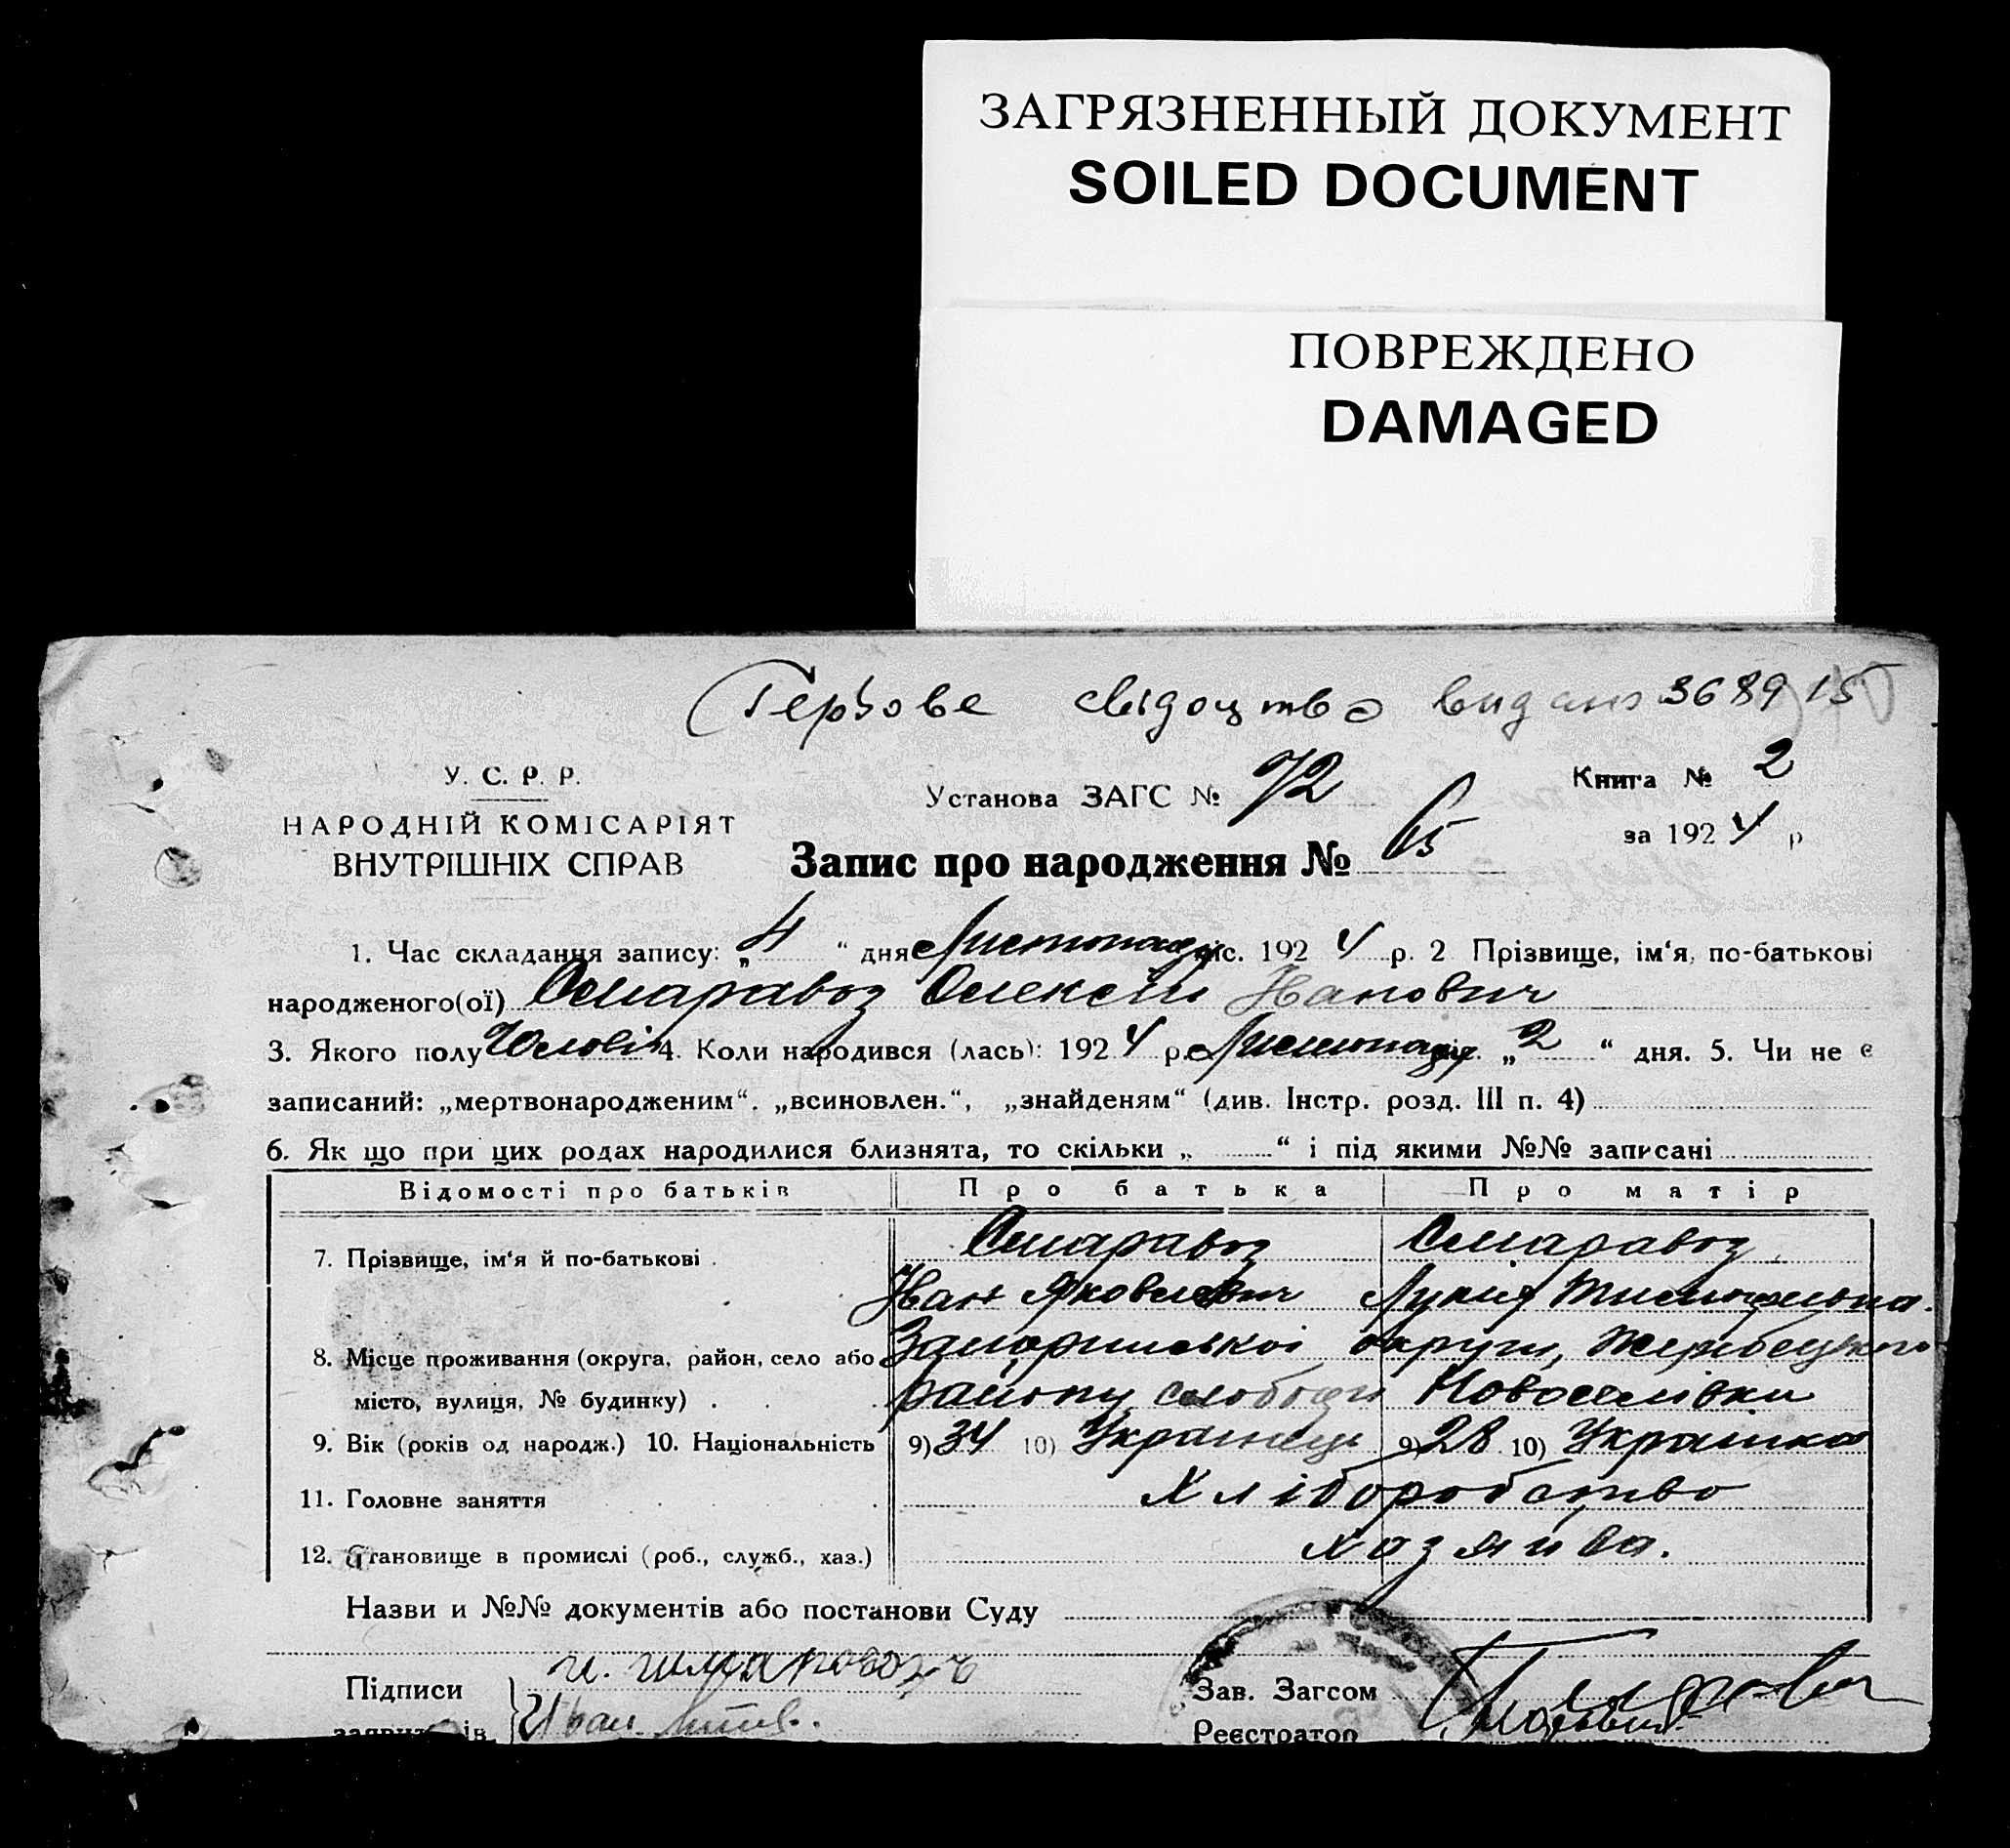 ЗАГРЯЗНЕННЫЙ ДОКУМЕНТ
SOILED DOCUMENT
ПОВРЕЖДЕНО
DAMAGED
Гербове свідоцтво видано 3689 15
У. С. Р. Р.
НАРОДНІЙ КОМІСАРІЯТ
ВНУТРІШНІХ СПРАВ
Установа ЗАГС № 72
Книга № 2
за 1924 р
Запис про народження № 65
1. Час складання запису: „4“ дня Листопаду міс. 1924 р. 2 Прізвище, ім‘я, по-батькові
народженого(ої) Олексій Іванович
3. Якого полу Чоловіч 4. Коли народився (лась): 1924 р. Листопаду міс. „2“ дня. 5. Чи не є
записаний: „мертвонародженим“. „всиновлен.“, „знайденям“ (див. Інстр. розд. III п. 4)
6. Як що при цих родах народилися близнята, то скільки „ “ і під якими №№ записані
Відомості про батьків Про батька Про матір
7. Прізвище, ім‘я й по-батькові
Іван Яковлевич Лукія
8. Місце проживання (округа, район, село або Запоріжської округи, Жеребецького
місто, вулиця, № будинку) району слободи Новоселівки
9. Вік (років од народж.) 10. Національність 9) 34 10) Українець 9) 28 10) Українка
11. Головне заняття Хліборобство
12. Становище в промислі (роб., служб., хаз.) хозяива.
Назви и №№ документів або постанови Суду
Підписи И.
Зав. Загсом
Иван
Реєстратор